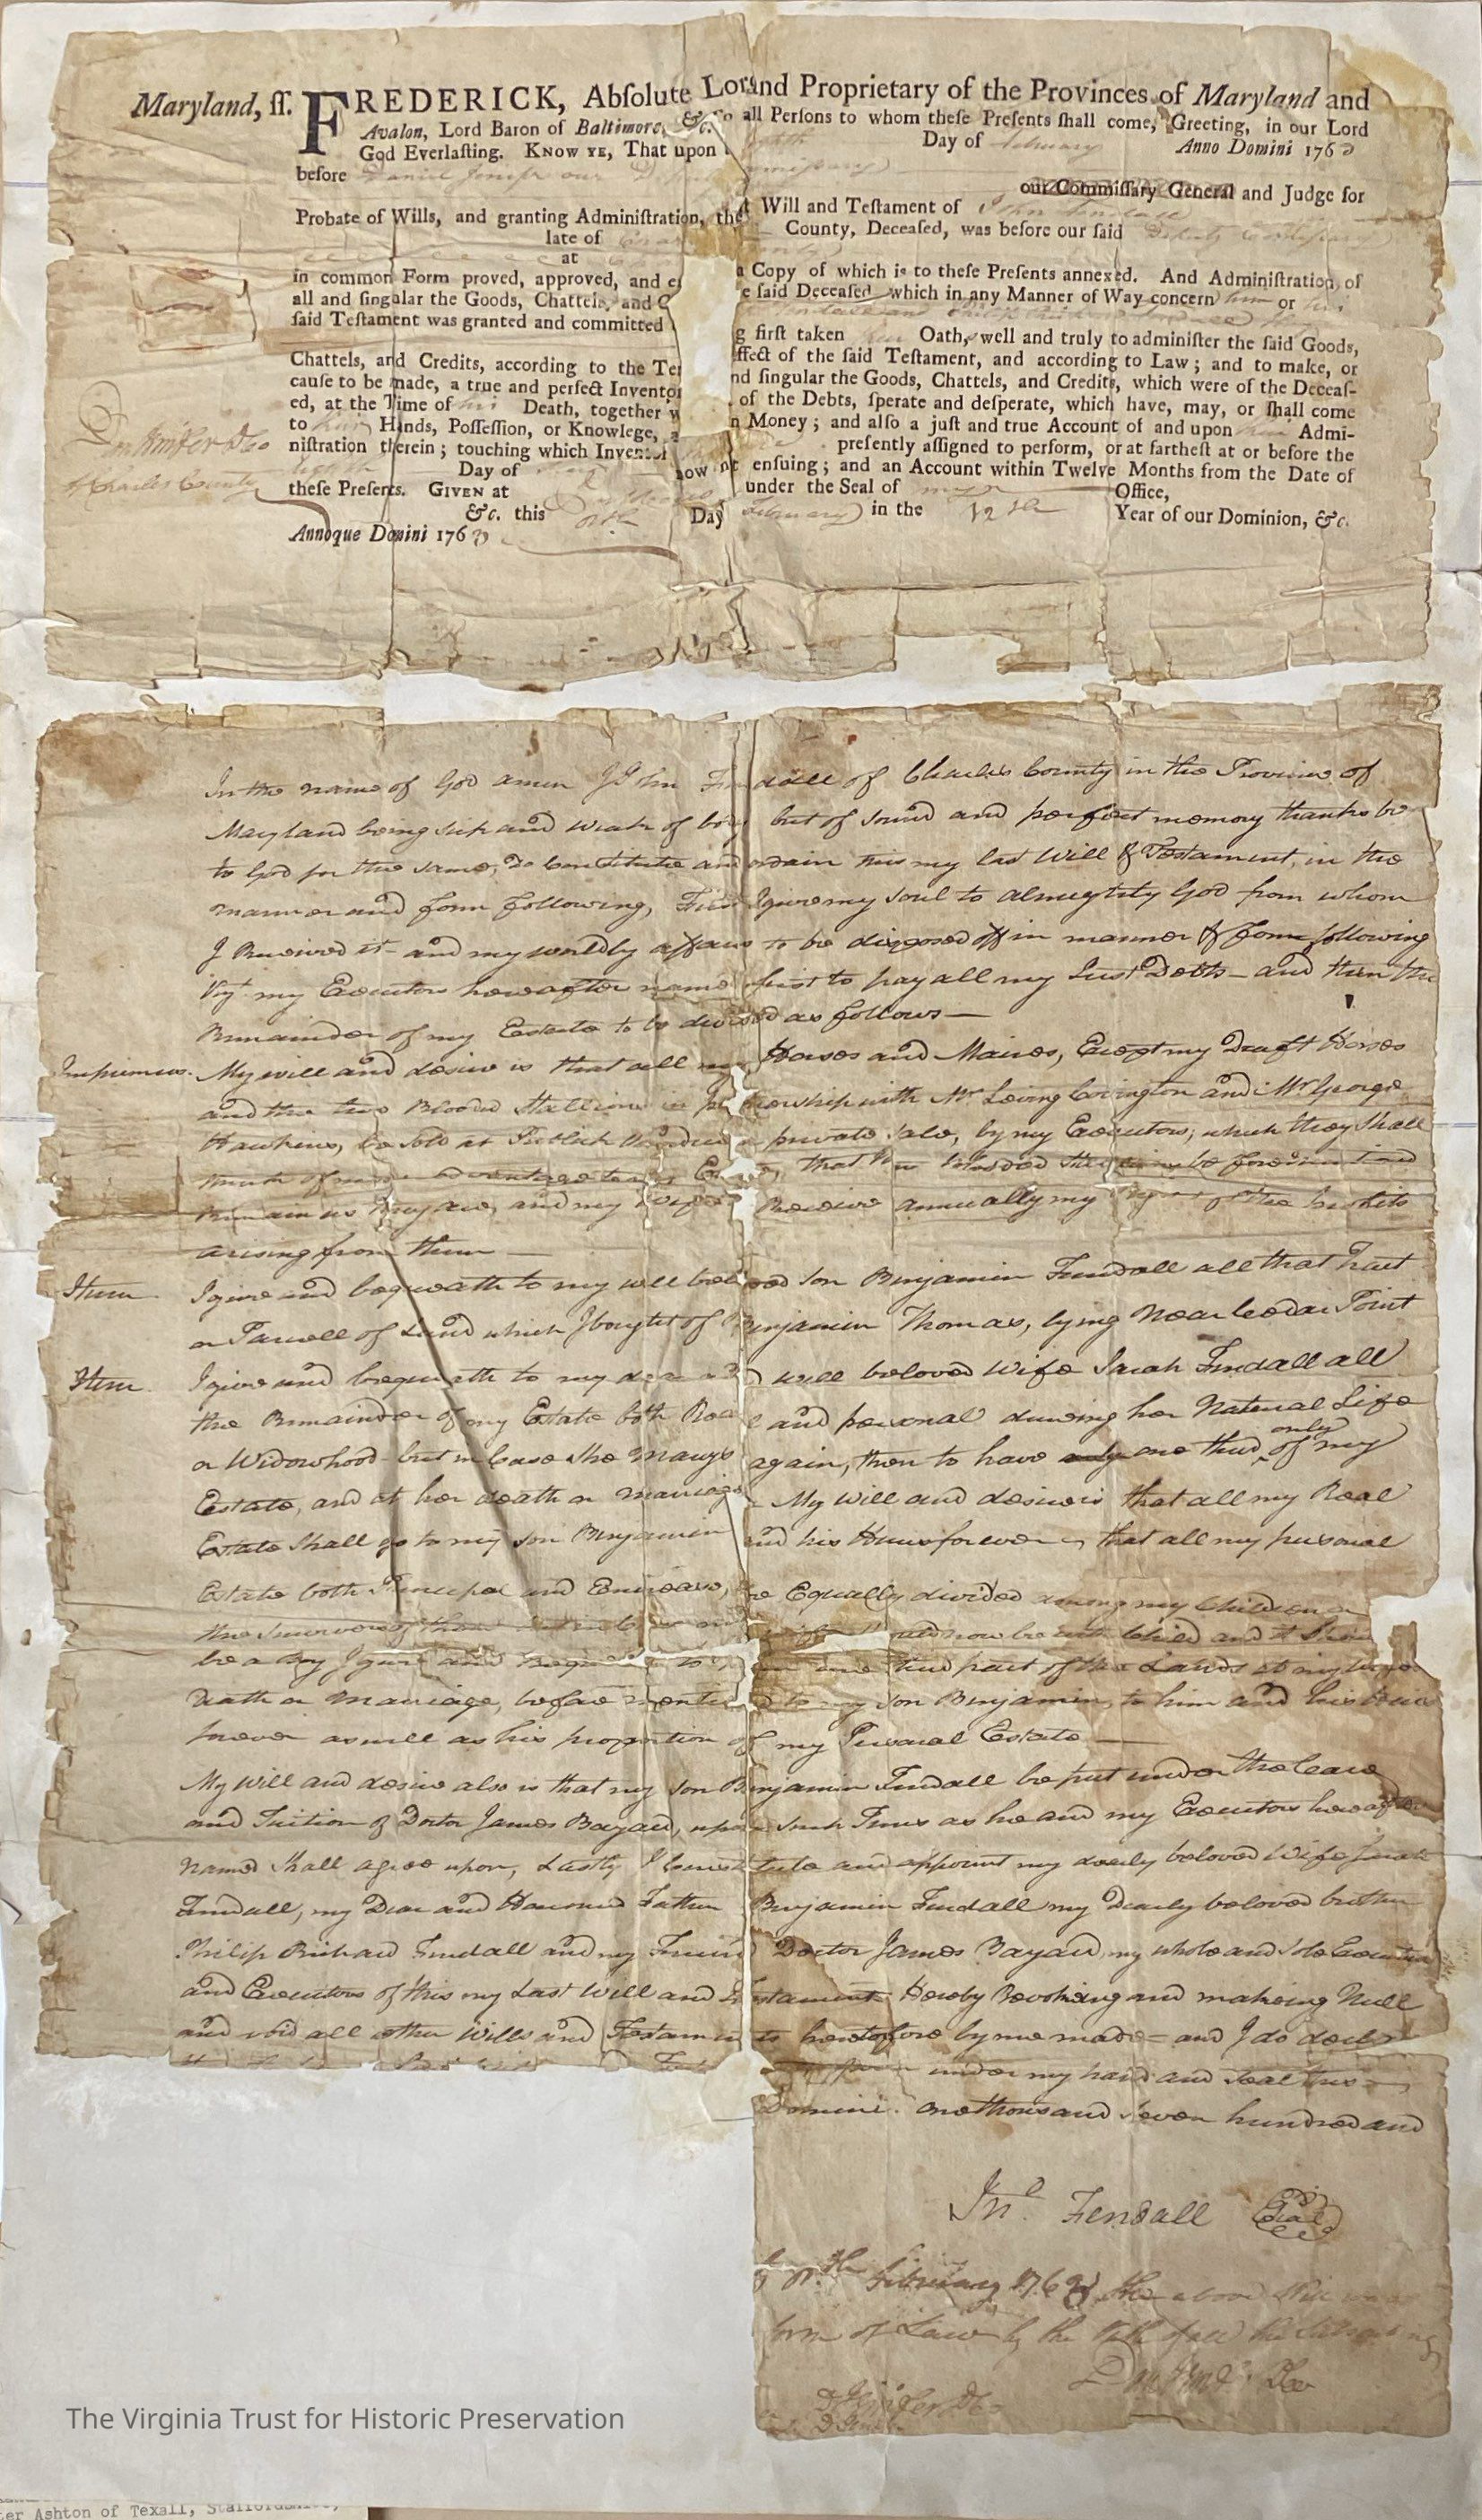 Maryland, ss. FREDERICK, Absolute Lord and Proprietary of the Provinces of Maryland and
Avalon, Lord Baron of Baltimore, &c. To all Persons to whom these Presents shall come, Greeting, in our Lord
God Everlasting. KNOW YE, That upon Day of February Anno Domini 1763
before Daniel Jenifer our Deputy Commissary
our Commissary General and Judge for
Probate of Wills, and granting Administration, the Will and Testament of John Fendall
late of County, Deceased, was before our said Deputy Commissary
at
in common Form proved, approved, and a Copy of which is to these Presents annexed. And Administration of
all and singular the Goods, Chattels, and C e said Deceased which in any Manner of Way concern him or his
said Testament was granted and committed
g first taken Oath, well and truly to administer the said Goods,
Chattels, and Credits, according to the Te ffect of the said Testament, and according to Law; and to make, or
cause to be made, a true and perfect Inventor nd singular the Goods, Chattels, and Credits, which were of the Deceas-
ed, at the Time of his Death, together w of the Debts, sperate and desperate, which have, may, or shall come
to Hands, Possession, or Knowlege, a n Money; and also a just and true Account of and upon Admi-
nistration therein; touching which Invento presently assigned to perform, or at farthest at or before the
Day of now ensuing; and an Account within Twelve Months from the Date of
these Presents. GIVEN at under the Seal of my Office,
&c. this Day February in the 12th Year of our Dominion, &c.
Annoque Domini 1763
Dan Jenifer Dco
of Charles County
In the name of God amen I John Fendall of Charles County in the Province of
Maryland being sick and weak of body but of sound and perfect memory thanks be
to God for the same, Do Constitute and ordain this my last Will & Testament, in the
manner and form following, First I give my soul to almighty God from whom
I Received it and my worldly affairs to be disposed off in manner & form following
Vizt. my Executors hereafter named first to pay all my Just Debts – and then the
Remainder of my Estate to be divided as follows —
Imprimus. My will and desire is that all my Horses and Maires, Except my Draft Horses
and the two Blooded Stallions in partnership with Mr. Leving Covington and Mr. George
Hawkins, be sold at Publick Vendue or private sale, by my Executors, which they shall
think of most advantage to my Estate, that the two blooded
Remain as they are, and my wife Receive annually my of the Profits
arising from them —
Item I give and bequeath to my well beloved son Benjamin Fendall all that Tract
or Parcell of Land which I bought of Benjamin Thomas, lying Near Ceedar Point
Item I give and bequeath to my dear and well beloved Wife Sarah Fendall all
the Remainder of my Estate both Real and personal dureing her Natural Life
or Widowhood – but in Case she Marrys again, then to have one third only of my
Estate, and at her death or marriage My will and desire is that all my Real
Estate shall go to my son Benjamin and his Heirs forever & that all my personal
Estate both Principal and Encrease, be Equally divided among my Children or
the survivors of them should now be with Child and it should
be a Boy I give and bequeath to him one third part of the Lands at my Wifes
Death or Marriage, before mentioned to my son Benjamin, to him and his heirs
forever as well as his proportion of my Personal Estate —
My will and desire also is that my son Benjamin Fendall be put under the Care
and Tuition of Doctor James Bayard, upon such Terms as he and my Executors hereafter
named shall agree upon, Lastly I Constitute and appoint my dearly beloved Wife Sarah
Fendall, my Dear and Honoured Father Benjamin Fendall my Dearly beloved brother
Philip Richard Fendall and my Friend Doctor James Bayard, my whole and sole Executrix
and Executors of this my Last Will and Testament Hereby Revokeing and makeing Null
and void all other Wills and Testaments heretofore by me made – and I do declare
under my hand and seal this
Domini. One thousand seven hundred and
Jno. Fendall Seal
February 1763 the above Will was
form of Law by the Oath of all the
Dan Jenifer Dco
The Virginia Trust for Historic Preservation
ter Ashton of Texall, Staffordshire,